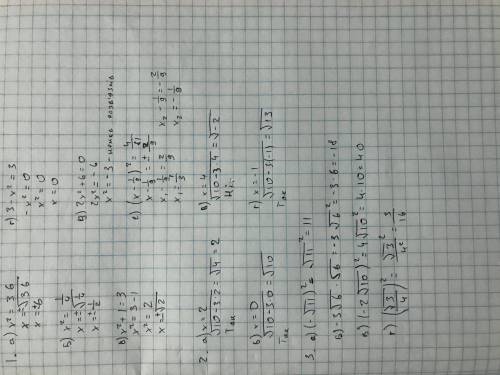 1. а) x² = 36
x = ±√36
x = ±6
Б) x² = 1/4
x = ±√1/4
x = ±1/2
в) x² + 1 = 3
x² = 3 - 1
x² = 2
x = ±√2
г) 3 - x² = 3
- x² = 0
x² = 0
x = 0
д) 2x² + 6 = 0
2x² = -6
x² = -3 - немає розв'язків
е) (x - 1/9)² = 4/81
x - 1/9 = ± 2/9
x₁ - 1/9 = 2/9 x₂ - 1/9 = -2/9
x₁ = 1/3 x₂ = -1/9
2. а) x = 2
√10-3·2 = √4 = 2
Так
б) x = 0
√10-3·0 = √10
Так
в) x = 4
√10-3·4 = √-2
Ні.
г) x = -1
√10-3(-1) = √13
Так
3. а) (-√11)² = √11² = 11
Б) -3√6 · √6 = -3√6² = -3·6 = -18
в) (-2√10)² = 4√10² = 4·10 = 40
г) (√3/4)² = √3²/4² = 3/16